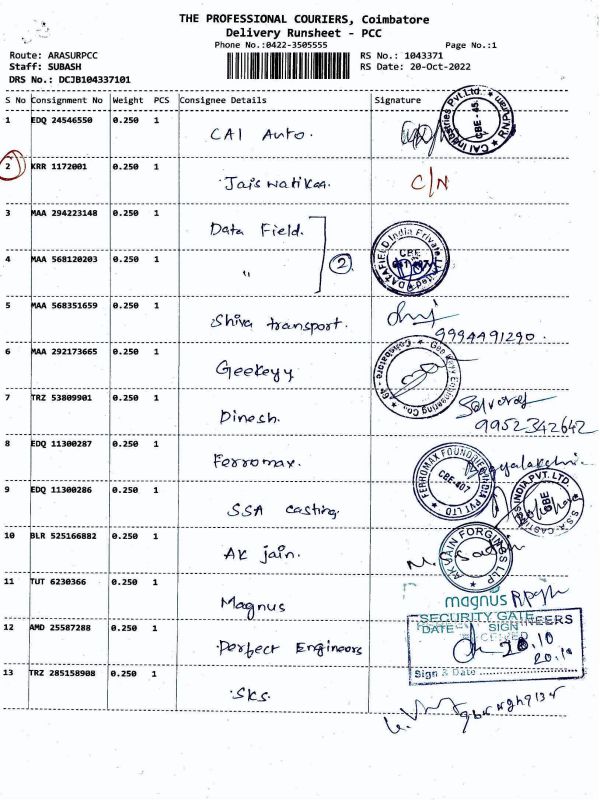 THE PROFESSIONAL COURIERS, Coimbatore
Delivery Runsheet - PCC
Phone No.:0422-3505555 Page No.:1
Route: ARASURPCC RS No.: 1043371
Staff: SUBASH RS Date: 20-Oct-2022
DRS No.: DCJB104337101
S No Consignment No Weight PCS Consignee Details Signature
1 EDQ 24546550 0.250 1 CAI Auto.
CAI Industries Pvt.Ltd. CBE - 45. R.N.P
2 KRR 1172001 0.250 1 Jaiswatikaa. C/N
3 MAA 294223148 0.250 1 Data Field.
4 MAA 568120203 0.250 1 " 2
DATAFIELD India Private Limited CBE
5 MAA 568351659 0.250 1 Shiva transport. 9994491290.
6 MAA 292173665 0.250 1 Geekeyy
Gee Keyy Engineering Co., Coimbatore - 641
7 TRZ 53809901 0.250 1 Dinesh. Selvaraj
9952342642
8 EDQ 11300287 0.250 1 Ferromax.
FERROMAX FOUNDRIES INDIA PVT LTD CBE-407
9 EDQ 11300286 0.250 1 SSA casting.
S.S.A. CASTINGS INDIA PVT. LTD. CBE
10 BLR 525166882 0.250 1 AK jain.
AK JAIN FORGINGS LLP
11 TUT 6230366 0.250 1 Magnus
magnus
12 AMD 25587288 0.250 1 Perfect Engineers
SECURITY GATE
DATE SIGN
20.10
20.10
Sign & Date
13 TRZ 285158908 0.250 1 SKS.